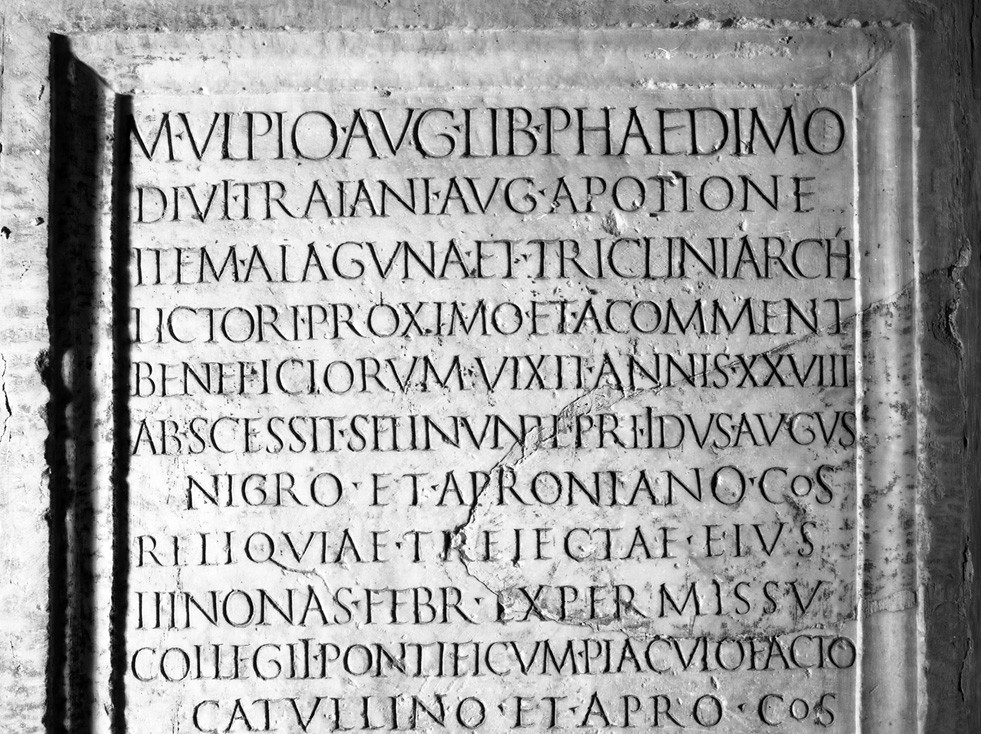 M·VLPIO·AVG·LIB·PHAEDIMO
DIVI·TRAIANI·AVG·A POTIONE
ITEM·A LAGVNA·ET·TRICLINIARCH
LICTORI·PROXIMO·ET·A COMMENT
BENEFICIORVM·VIXIT·ANNIS·XXVIII
ABSCESSIT·SELINVNTE·PRI·IDVS·AVGVS
NIGRO·ET·APRONIANO·COS
RELIQVIAE·TREIECTAE·EIVS
III NONAS·FEBR·EX PERMISSV
COLLEGII·PONTIFICVM·PIACVLO FACTO
CATVLLINO·ET·APRO·COS